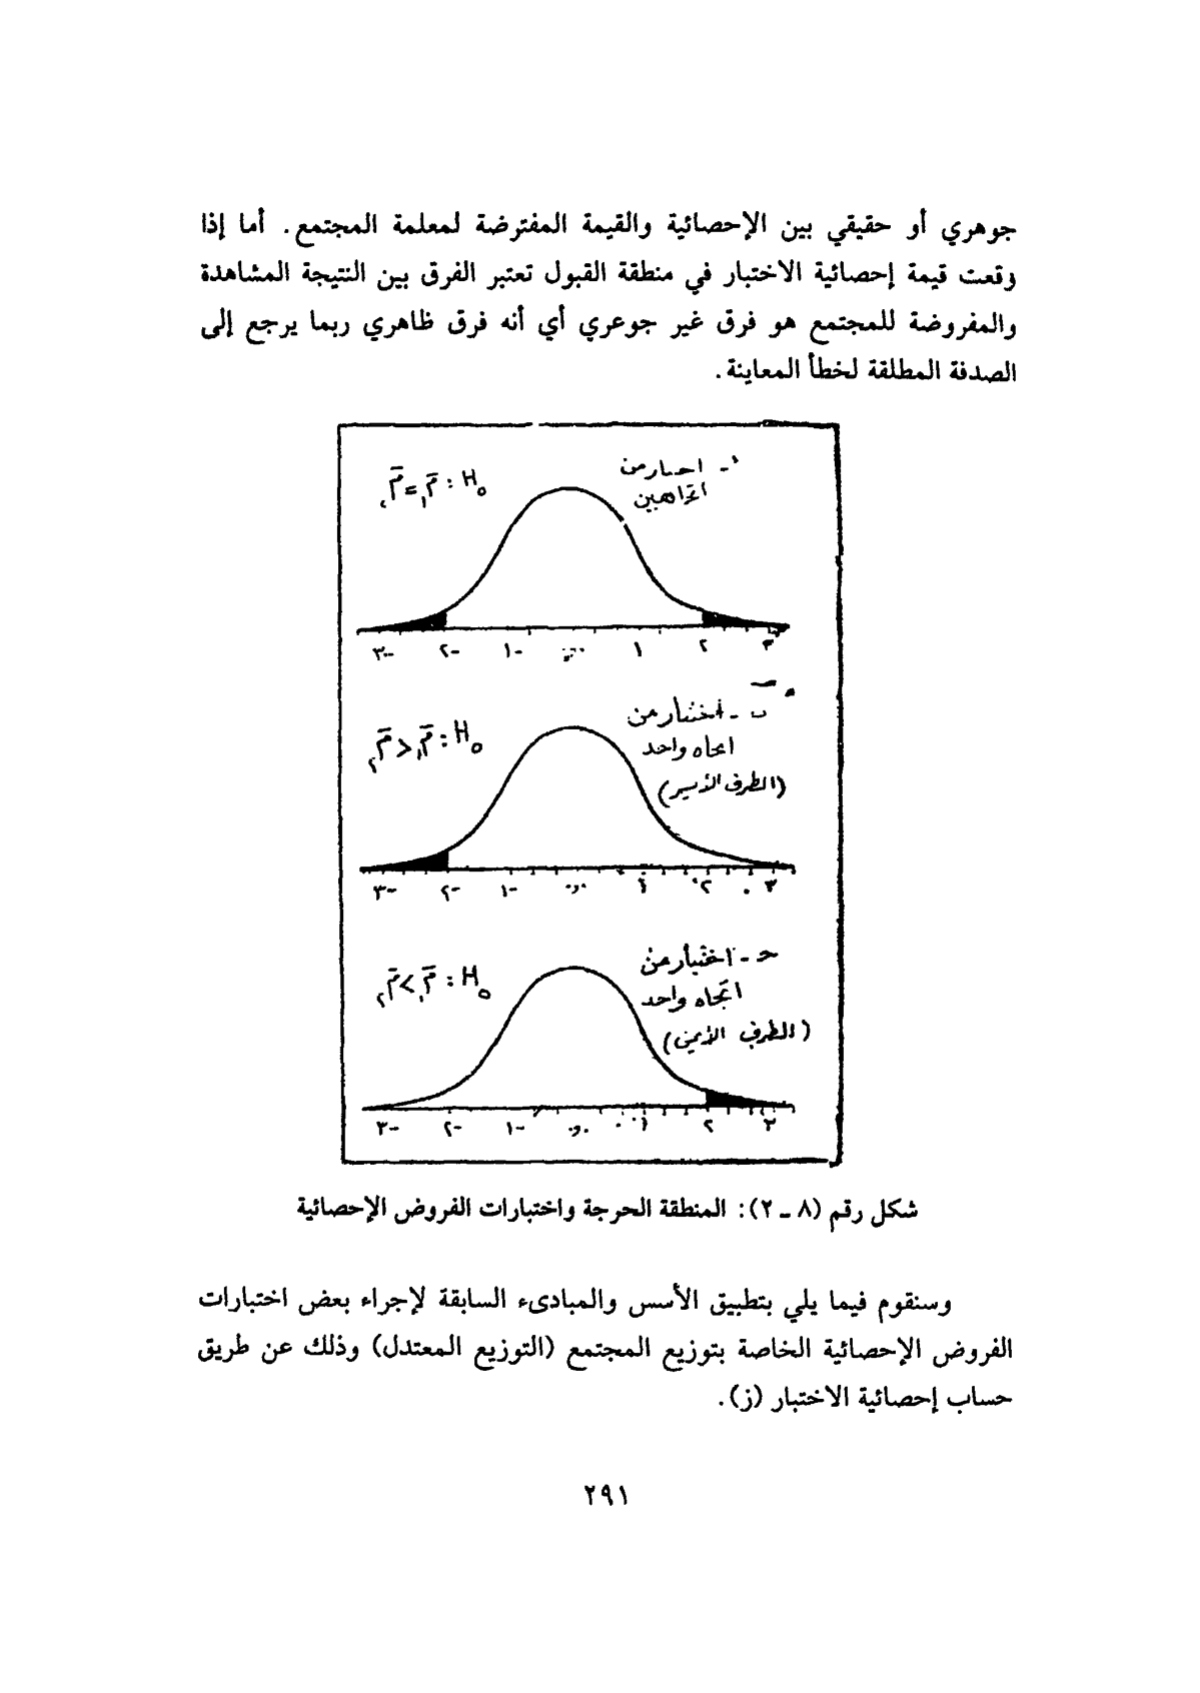 جوهري أو حقيقي بين الإحصائية والقيمة المفترضة لمعلمة المجتمع. أما إذا
وقعت قيمة إحصائية الاختبار في منطقة القبول تعتبر الفرق بين النتيجة المشاهدة
والمفروضة للمجتمع هو فرق غير جوعري أي أنه فرق ظاهري ربما يرجع إلى
الصدفة المطلقة لخطأ المعاينة.
اختبار من
اتجاهين
H₀ : م̄₁ = م̄₂
-٣ -٢ -١ ١ ٢ ٣
ب - اختبار من
اتجاه واحد
(الطرف الأيسر)
H₀ : م̄₁ > م̄₂
-٣ -٢ -١ ١ ٢ ٣
حـ - اختبار من
اتجاه واحد
(الطرف الأيمن)
H₀ : م̄₁ < م̄₂
-٣ -٢ -١ ١ ٢ ٣
شكل رقم (٨ - ٢): المنطقة الحرجة واختبارات الفروض الإحصائية
وسنقوم فيما يلي بتطبيق الأسس والمبادىء السابقة لإجراء بعض اختبارات
الفروض الإحصائية الخاصة بتوزيع المجتمع (التوزيع المعتدل) وذلك عن طريق
حساب إحصائية الاختبار (ز).
٢٩١